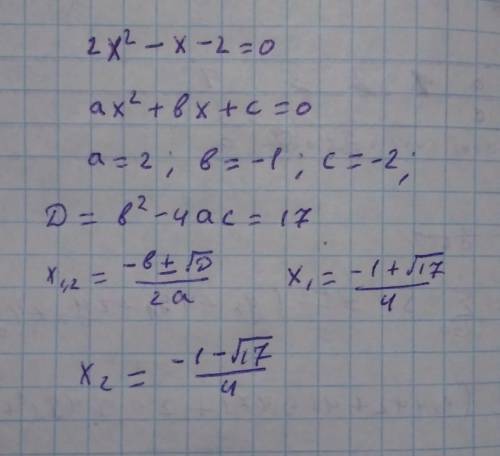 2x² - x - 2 = 0
ax² + bx + c = 0
a = 2; b = -1; c = -2;
D = b² - 4ac = 17
x₁,₂ = (-b ± √D)/(2a) x₁ = (-1 + √17)/4
x₂ = (-1 - √17)/4